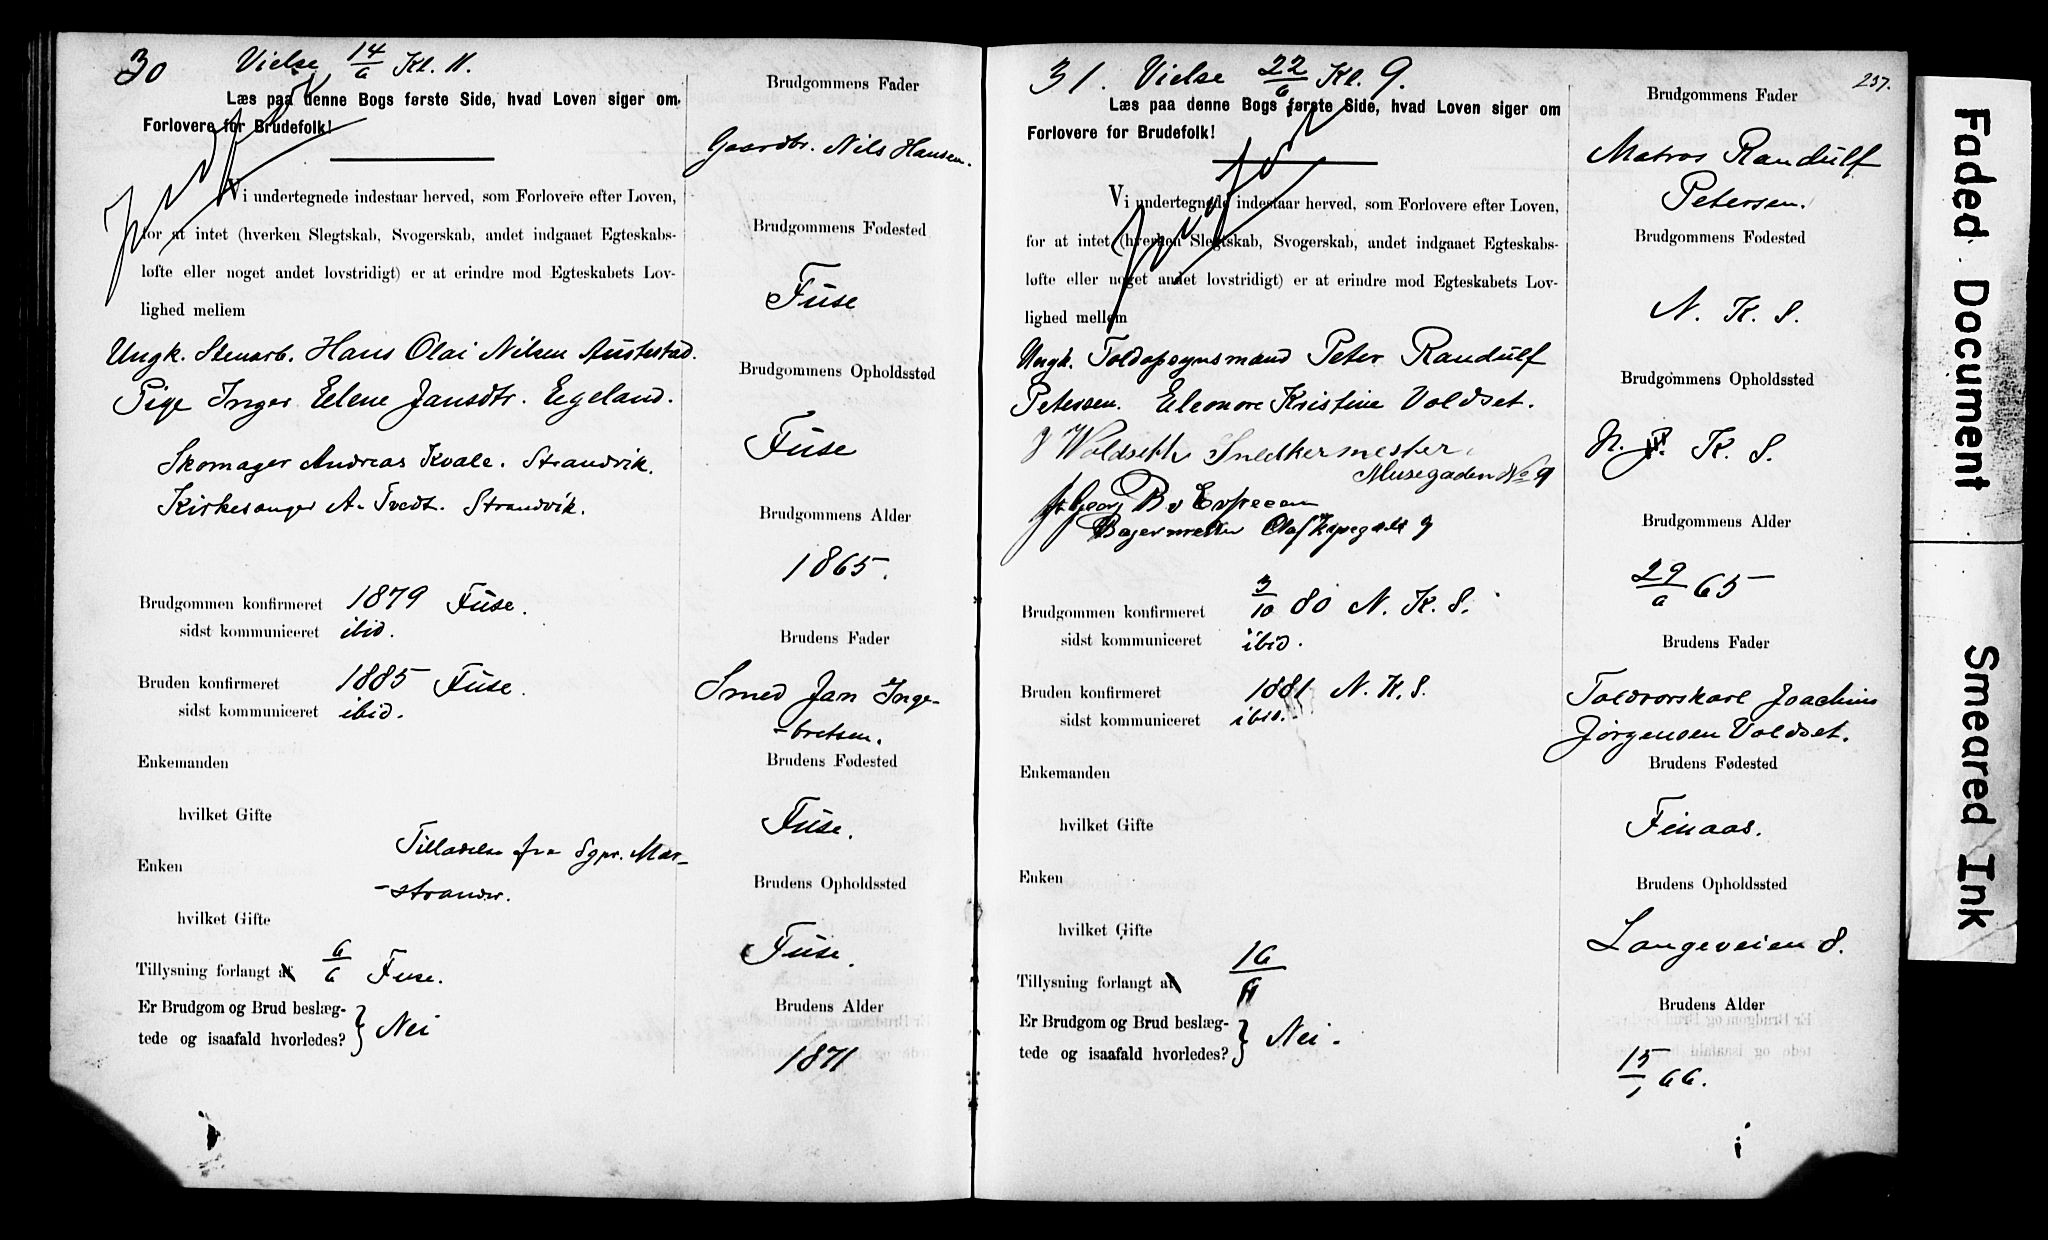 30 Vielse 14/6 Kl. 11.
Læs paa denne Bogs første Side, hvad Loven siger om
Forlovere for Brudefolk!
Vi undertegnede indestaar herved, som Forlovere efter Loven,
for at intet (hverken Slegtskab, Svogerskab, andet indgaaet Egteskabs-
løfte eller noget andet lovstridigt) er at erindre mod Egteskabets Lov-
lighed mellem
Ungk. Stenarb. Hans Olai Nilsen Austestad.
Pige Inger Elene Jansdtr. Egeland.
Skomager Andreas Kvale. Strandvik.
Kirkesanger A. Tvedt. Strandvik.
Brudgommen konfirmeret 1879 Fuse.
sidst kommuniceret ibid.
Bruden konfirmeret 1885 Fuse.
sidst kommuniceret ibid.
Enkemanden
hvilket Gifte
Tilladelse fra Sgpr. Mar-
Enken
-strander.
hvilket Gifte
Tillysning forlangt af 6/6 Fuse.
Er Brudgom og Brud beslæg-
tede og isaafald hvorledes? } Nei
Brudgommens Fader
Gaardbr. Nils Hansen.
Brudgommens Fødested
Fuse
Brudgommens Opholdssted
Fuse
Brudgommens Alder
1865.
Brudens Fader
Smed Jan Inge-
-bretsen.
Brudens Fødested
Fuse.
Brudens Opholdssted
Fuse.
Brudens Alder
1871
31. Vielse 22/6 Kl. 9.
Læs paa denne Bogs første Side, hvad Loven siger om
Forlovere for Brudefolk!
Vi undertegnede indestaar herved, som Forlovere efter Loven,
for at intet (hverken Slegtskab, Svogerskab, andet indgaaet Egteskabs-
løfte eller noget andet lovstridigt) er at erindre mod Egteskabets Lov-
lighed mellem
Ungk. Toldopsynsmand Peter Randulf
Petersen. Eleonore Kristine Voldset.
J Woldseth Snedkermester
Musegaden No 9
Georg B
Bagermester Olaf 9
Brudgommen konfirmeret 3/10 80 N. K. S.
sidst kommuniceret ibid.
Bruden konfirmeret 1881 N. K. S.
sidst kommuniceret ibid.
Enkemanden
hvilket Gifte
Enken
hvilket Gifte
Tillysning forlangt af 16/6
Er Brudgom og Brud beslæg-
tede og isaafald hvorledes? } Nei.
237.
Brudgommens Fader
Matros Randulf
Petersen.
Brudgommens Fødested
N. K. S.
Brudgommens Opholdssted
N. K. S.
Brudgommens Alder
29/6 65
Brudens Fader
Toldrorskarl Joachim
Jørgensen Voldset.
Brudens Fødested
Finaas.
Brudens Opholdssted
Langeveien 8.
Brudens Alder
15/1 66.
Faded Document
Smeared Ink